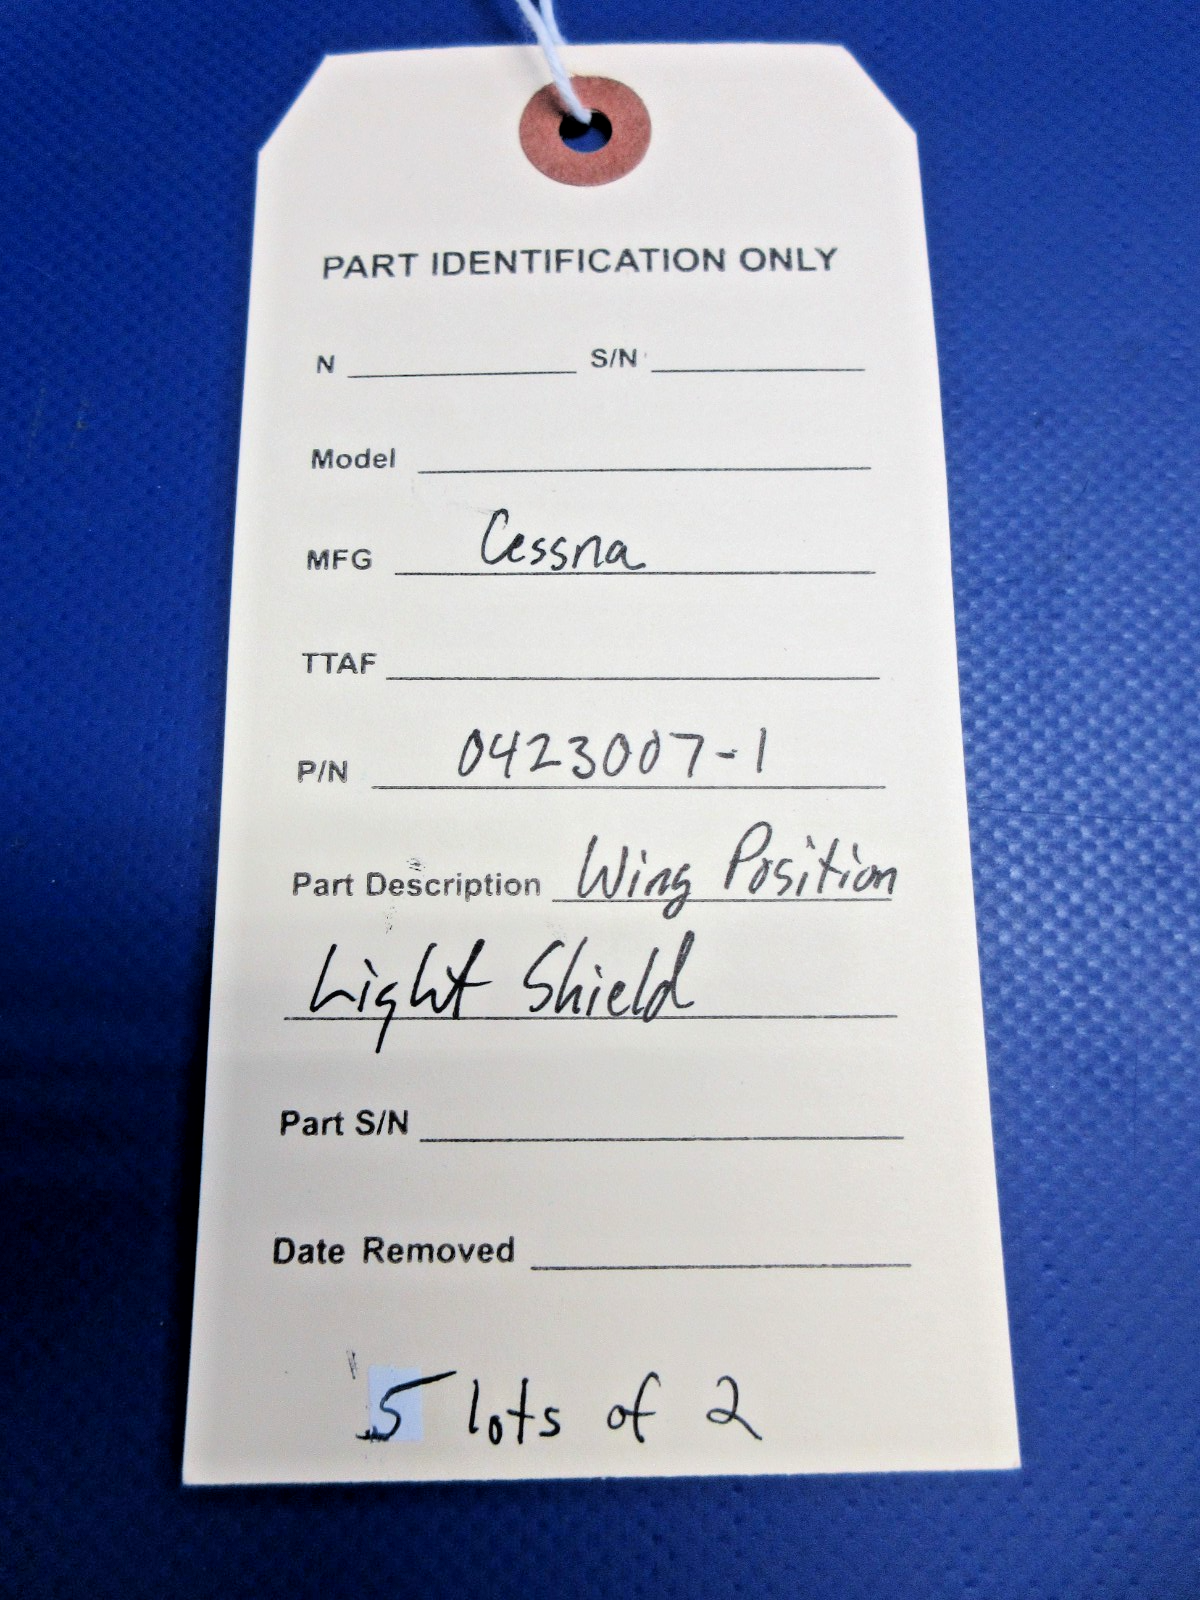 PART IDENTIFICATION ONLY
N S/N
Model
MFG Cessna
TTAF
P/N 0423007-1
Part Description Wing Position
Light Shield
Part S/N
Date Removed
5 lots of 2